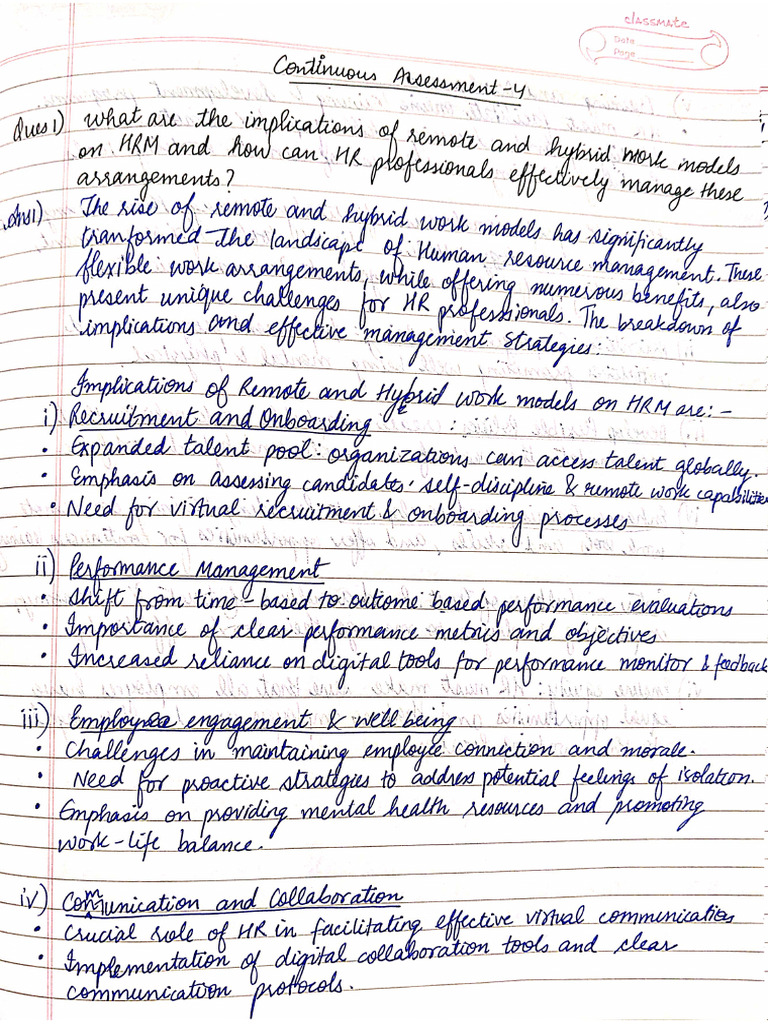 classmate
Date
Page
Continuous Assessment-4
Ques 1) What are the implications of remote and hybrid work models
on HRM and how can HR professionals effectively manage these
arrangements?
Ans1) The rise of remote and hybrid work models has significantly
tranformed the landscape of Human resource management. These
flexible work arrangements, while offering numerous benefits, also
present unique challenges for HR professionals. The breakdown of
implications and effective management strategies:
Implications of Remote and Hybrid work models on HRM are:-
i) Recruitment and Onboarding :
• Expanded talent pool: organizations can access talent globally.
• Emphasis on assessing candidates' self-discipline & remote work capabilities
• Need for virtual recruitment & onboarding processes
ii) Performance Management
• Shift from time-based to outcome based performance evaluations
• Importance of clear performance metrics and objectives
• Increased reliance on digital tools for performance monitor & feedback
iii) Employee engagement & well being
• Challenges in maintaining employee connection and morale.
• Need for proactive strategies to address potential feelings of isolation.
• Emphasis on providing mental health resources and promoting
work-life balance.
iv) Communication and Collaboration
• Crucial role of HR in facilitating effective virtual communication
• Implementation of digital collaboration tools and clear
communication protocols.